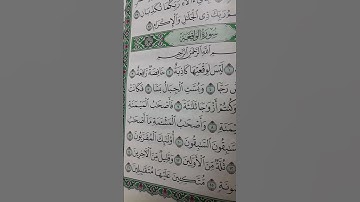 رَبِّكَ ذِى الْجَلَٰلِ وَالْإِكْرَامِ
سُورَةُ الْوَاقِعَةِ
اللَّهِ الرَّحْمَٰنِ الرَّحِيمِ
لَيْسَ لِوَقْعَتِهَا كَاذِبَةٌ خَافِضَةٌ رَّافِعَةٌ
رَجًّا وَبُسَّتِ الْجِبَالُ بَسًّا فَكَانَتْ
وَكُنتُمْ أَزْوَٰجًا ثَلَٰثَةً فَأَصْحَٰبُ الْمَيْمَنَةِ
وَأَصْحَٰبُ الْمَشْـَٔمَةِ مَا أَصْحَٰبُ
السَّٰبِقُونَ أُولَٰئِكَ الْمُقَرَّبُونَ
ثُلَّةٌ مِّنَ الْأَوَّلِينَ وَقَلِيلٌ مِّنَ الْآخِرِينَ
مُّتَّكِـِٔينَ عَلَيْهَا مُتَقَٰبِلِينَ